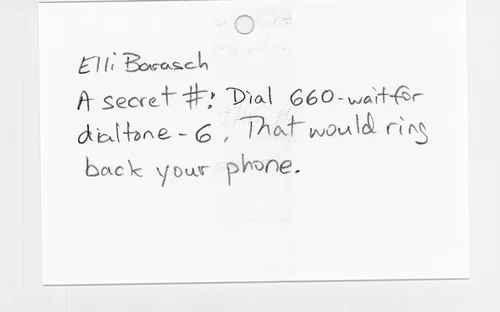 Elli Barasch
A secret #: Dial 660-wait for
dialtone - 6. That would ring
back your phone.